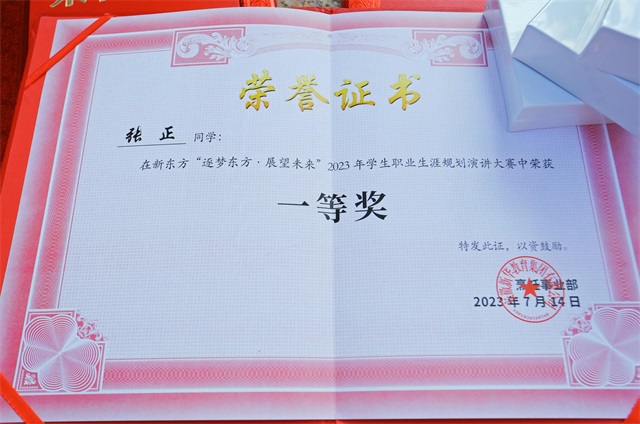 荣誉证书
张正 同学：
在新东方“逐梦东方·展望未来”2023年学生职业生涯规划演讲大赛中荣获
一等奖
特发此证，以资鼓励。
烹饪事业部
2023年7月14日